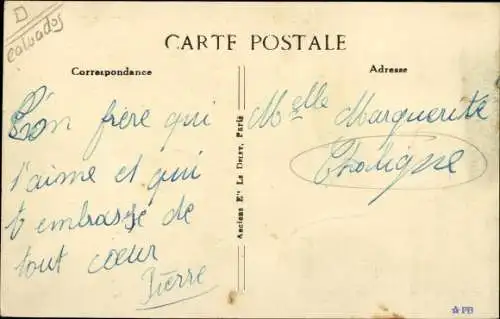 D
Calvados
CARTE POSTALE
Correspondance
Adresse
Ton frère qui
t'aime et qui
t'embrasse de
tout cœur
Pierre
Anciens Etts Le Deley, Paris
Melle Marguerite
PB